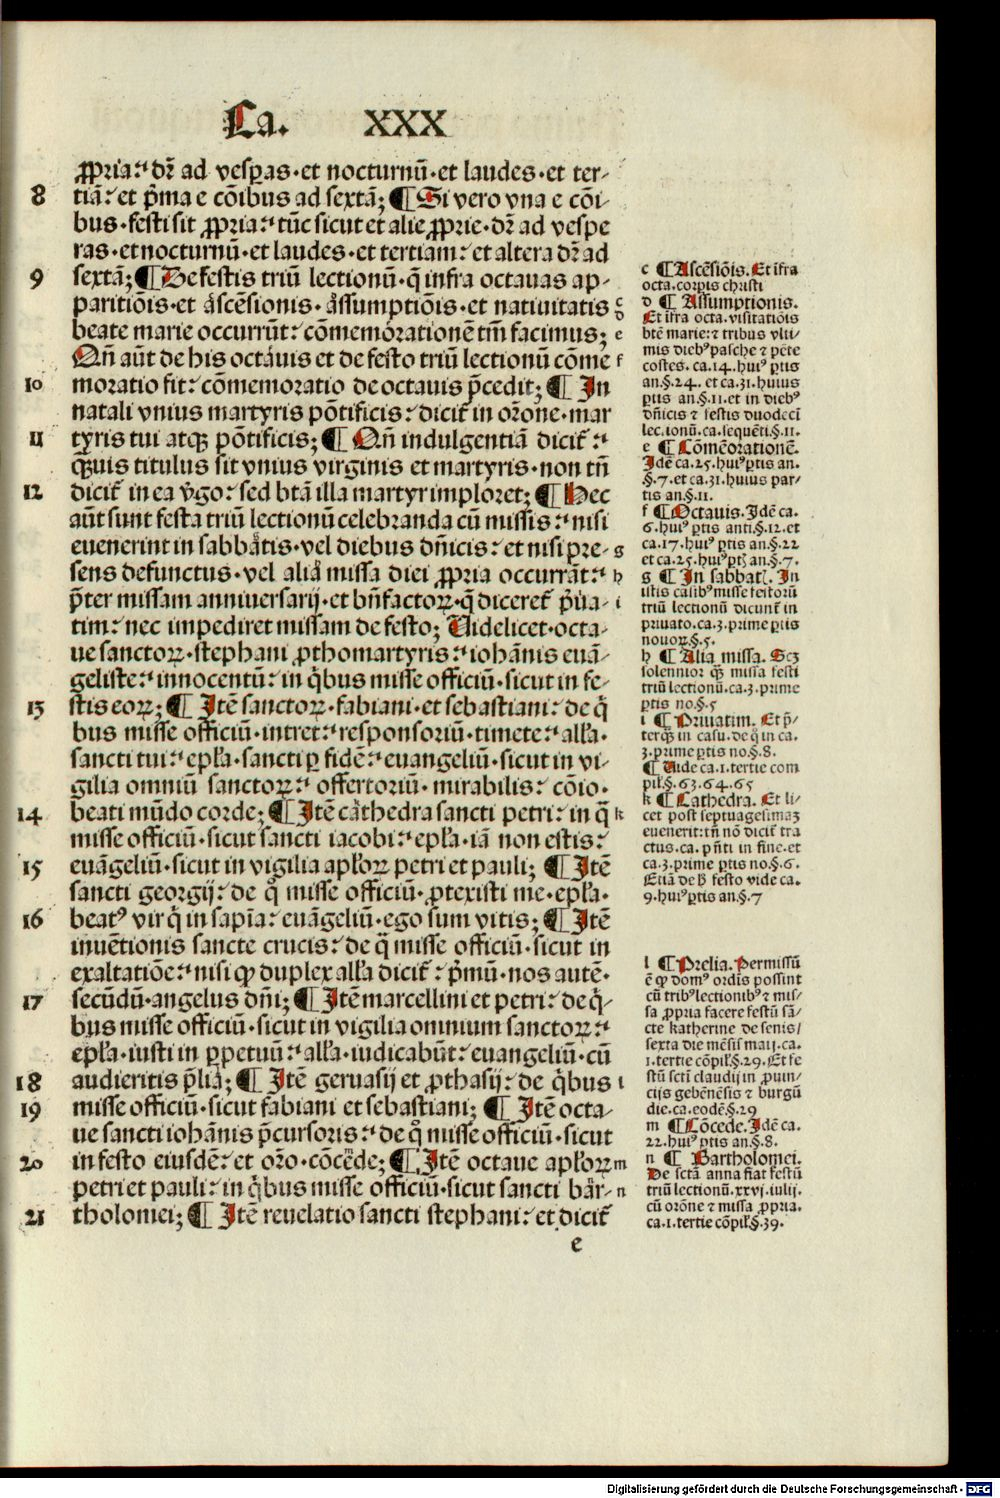 Ca. XXX
ꝓpria: dr̄ ad vesꝑas·et nocturnū·et laudes·et ter-
8 tiā: et p̄ma e cōibus ad sextā; ¶ Si vero vna e cōi-
bus·festi sit ꝓpria: tūc sicut et alie ꝓprie·dr̄ ad vespe
ras·et nocturnū·et laudes·et tertiam: et altera dr̄ ad
9 sextā; ¶ De festis triū lectionū·q̄ infra octauas ap-
paritiōis·et ascēsionis·assumptiōis·et natiuitatis c
beate marie occurrūt: cōmemorationē tm̄ facimus; d e
Qn̄ aūt de his octauis et de festo triū lectionū cōme f
10 moratio fit: cōmemoratio de octauis p̄cedit; ¶ In
natali vnius martyris pōtificis: dicit̄ in orōne·mar
11 tyris tui atqꝫ pōtificis; ¶ Qn̄ indulgentiā dicit̄:
q̄uis titulus sit vnius virginis et martyris·non tn̄
12 dicit̄ in ea v̄go: sed btā illa martyr imploret; ¶ Hec
aūt sunt festa triū lectionū celebranda cū missis: nisi
euenerint in sabbatis·vel diebus dn̄icis: et nisi pre- g
sens defunctus·vel alia missa diei ꝓpria occurrāt: h
p̄ter missam anniuersarij·et bn̄factoꝝ·q̄ diceret̄ p̄ua- i
tim: nec impediret missam de festo; Videlicet·octa-
ue sanctoꝝ·stephani ꝓthomartyris: iohānis euā-
geliste: innocentū: in q̄bus misse officiū·sicut in fe-
13 stis eoꝝ; ¶ Itē sanctoꝝ·fabiani·et sebastiani: de q̄
bus misse officiū·intret: responsoriū·timete: alła·
sancti tui: epła·sancti ꝑ fidē: euangeliū·sicut in vi-
gilia omniū sanctoꝝ: offertoriū·mirabilis: cōio·
14 beati mūdo corde; ¶ Itē cathedra sancti petri: in q̄ k
misse officiū·sicut sancti iacobi: epła·iā non estis:
15 euāgeliū·sicut in vigilia apłoꝝ petri et pauli; ¶ Itē
sancti georgij: de qͦ misse officiū·ꝓtexisti me·epła·
16 beatꝰ vir q̄ in sapīa: euāgeliū·ego sum vitis; ¶ Itē
inuētionis sancte crucis: de q̄ misse officiū·sicut in
exaltatiōe: nisi ꝙ duplex alła dicit̄: p̄mū·nos autē·
17 secūdū·angelus dn̄i; ¶ Itē marcellini et petri: de q̄-
bus misse officiū·sicut in vigilia omnium sanctoꝝ:
epła·iusti in ꝑpetuū: alła·iudicabūt: euangeliū·cū
18 audieritis p̄lia; ¶ Itē geruasij et ꝓthasij: de q̄bus l
19 misse officiū·sicut fabiani et sebastiani; ¶ Itē octa-
ue sancti iohānis p̄cursoris: de qͦ misse officiū·sicut
20 in festo eiusdē: et orō·cōcede; ¶ Itē octaue apłoꝝ m
petri et pauli: in q̄bus misse officiū·sicut sancti bar- n
21 tholomei; ¶ Itē reuelatio sancti stephani: et dicit̄
e
c ¶ Ascēsiōis. Et īfra
octa. corꝑis christi
d ¶ Assumptionis.
Et īfra octa. visitatiōis
btē marie: ⁊ tribus vlti-
mis diebꝰ pasche ⁊ pēte
costes. ca. 14. huiꝰ ꝑtis
an. §. 24. et ca. 31. huius
ꝑtis an. §. 11. et in diebꝰ
dn̄icis ⁊ festis duodecī
lectionū. ca. sequēti. §. 11.
e ¶ Cōmēorationē.
Idē ca. 25. huiꝰ ꝑtis an.
§. 7. et ca. 31. huius par-
tis an. §. 11.
f ¶ Octauis. Idē ca.
6. huiꝰ ꝑtis anti. §. 12. et
ca. 17. huiꝰ ꝑtis an. §. 22
et ca. 25. huiꝰ ꝑtis an. §. 7.
g ¶ In sabbat̄. In
istis casibꝰ misse festorū
triū lectionū dicunt̄ in
priuato. ca. 3. prime ꝑtis
nouoꝝ. §. 5.
h ¶ Alia missa. Scꝫ
solennior q̄ꝫ missa festi
triū lectionū. ca. 3. prime
ꝑtis no. §. 5
i ¶ Priuatim. Et p̄-
terq̄ꝫ in casu. de q̄ in ca.
3. prime ꝑtis no. §. 8.
¶ Vide ca. 1. tertie com
pił. §. 63. 64. 65
k ¶ Cathedra. Et li-
cet post septuagesimaꝫ
euenerit: tn̄ nō dicit̄ tra
ctus. ca. pn̄ti in fine. et
ca. 3. prime ꝑtis no. §. 6.
Etiā de h̄ festo vide ca.
9. huiꝰ ꝑtis an. §. 7
l ¶ Prelia. Permissū
ē ꝙ domꝰ ordīs possint
cū tribꝰ lectionibꝰ ⁊ mis-
sa ꝓpria facere festū sā-
cte katherine de senis/
sexta die mēsis maij. ca.
1. tertie cōpił. §. 29. Et fe
stū scti claudij in ꝓuin-
cijs gebēnēsis ⁊ burgū
die. ca. eodē. §. 29
m ¶ Cōcede. Idē ca.
22. huiꝰ ꝑtis an. §. 8.
n ¶ Bartholomei.
De sctā anna fiat festū
triū lectionū. xxvj. iulij.
cū orōne ⁊ missa ꝓpria.
ca. 1. tertie cōpił. §. 39.
Digitalisierung gefördert durch die Deutsche Forschungsgemeinschaft - DFG